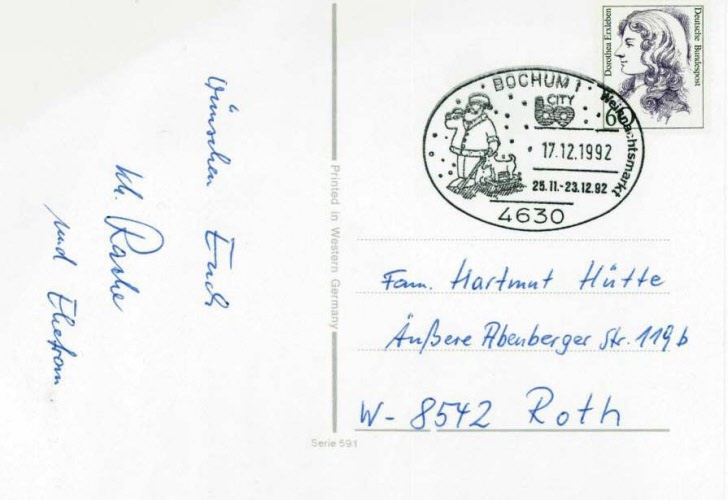 Wünschen Euch
Kh. Rashe
und Ehefrau
Printed in Western Germany
Serie 591
Dorothea Erxleben
Deutsche Bundespost
6
BOCHUM 1
CITY
bo
Weihnachtsmarkt
17.12.1992
25.11.-23.12.92
4630
Fam. Hartmut Hütte
Äußere Abenberger Str. 119b
W-8542 Roth